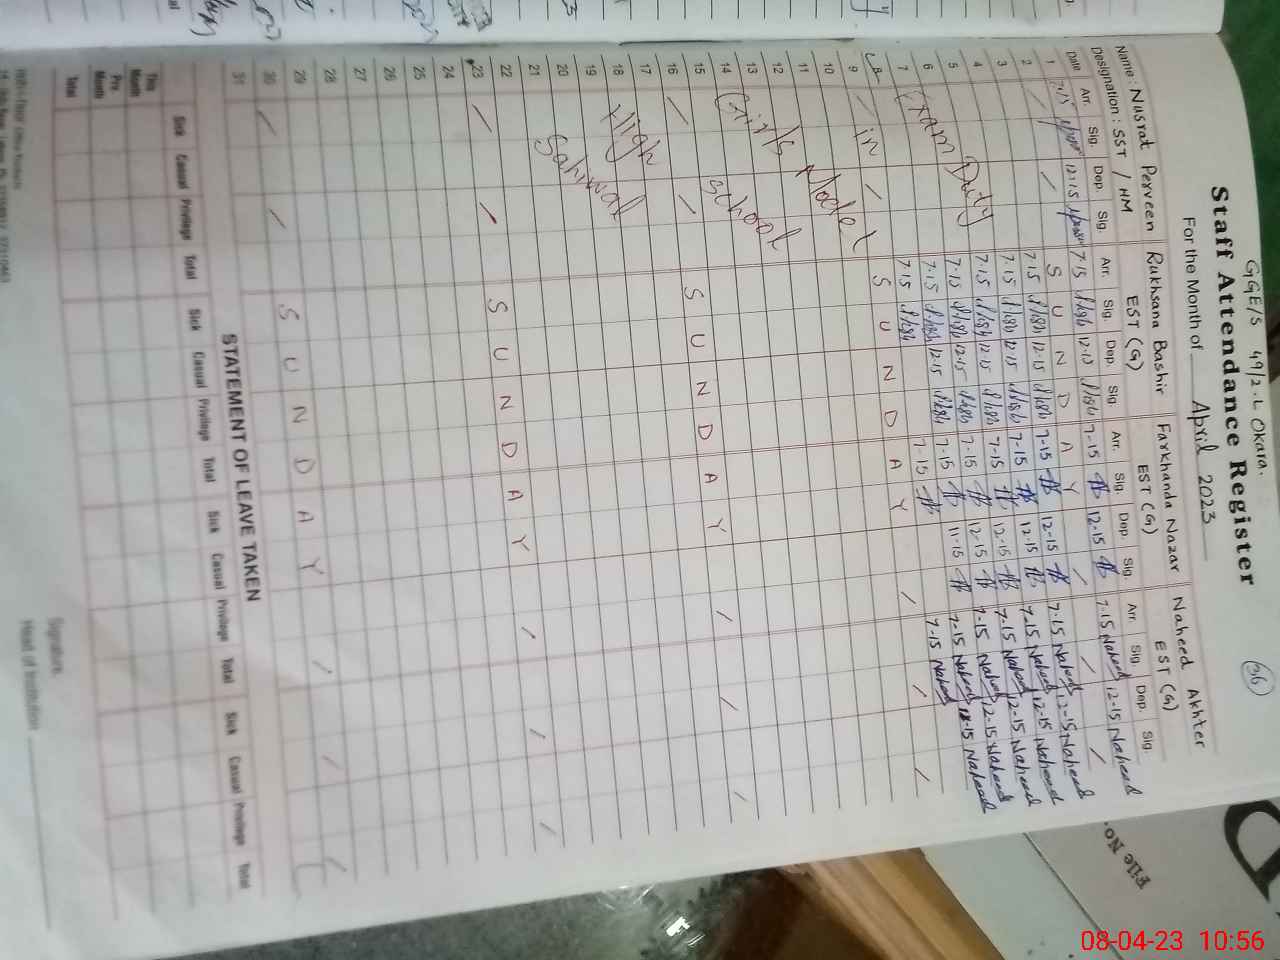 GGE/S 49/2-L Okara.
36
Staff Attendance Register
For the Month of April 2023
Name : Nusrat Perveen Rukhsana Bashir Farkhanda Nazar Naheed Akhter
Designation : SST / HM EST (G) EST (G) EST (G)
Date Arr. Sig. Dep. Sig. Arr. Sig. Dep. Sig. Arr. Sig. Dep. Sig. Arr. Sig. Dep. Sig.
1 7-15 12-15 7-15 12-15 7-15 12-15 7-15 Naheed 12-15 Naheed
2 S U N D A Y
3 7-15 12-15 7-15 12-15 7-15 Naheed 12-15 Naheed
4 7-15 12-15 7-15 12-15 7-15 Naheed 12-15 Naheed
5 7-15 12-15 7-15 12-15 7-15 Naheed 12-15 Naheed
6 Exam Duty 7-15 12-15 7-15 12-15 7-15 Naheed 12-15 Naheed
7 7-15 12-15 7-15 11-15 7-15 Naheed 12-15 Naheed
7-15 7-15 7-15 Naheed
9 in S U N D A Y
10
11 Model
12
13 Girls
14 School
15
16 S U N D A Y
17
18 High
19
20 Sahiwal
21
22
23 S U N D A Y
24
25
26
27
28
29
30 S U N D A Y
31
STATEMENT OF LEAVE TAKEN
Sick Casual Privilege Total Sick Casual Privilege Total Sick Casual Privilege Total Sick Casual Privilege Total
This Month
Pre Month
Total
Signature
Head of Institution
File No.
08-04-23 10:56